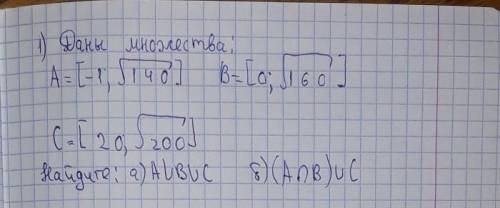 1) Даны множества:
A=[-1,√140] B=[0;√160]
C=[20;√200]
Найдите: а) A∪B∪C б) (A∩B)∪C